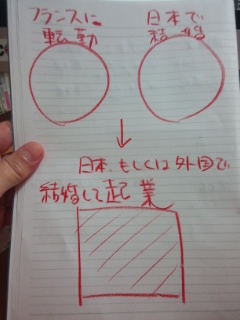 フランスに
転勤
日本で
結婚
日本、もしくは外国で
結婚して起業